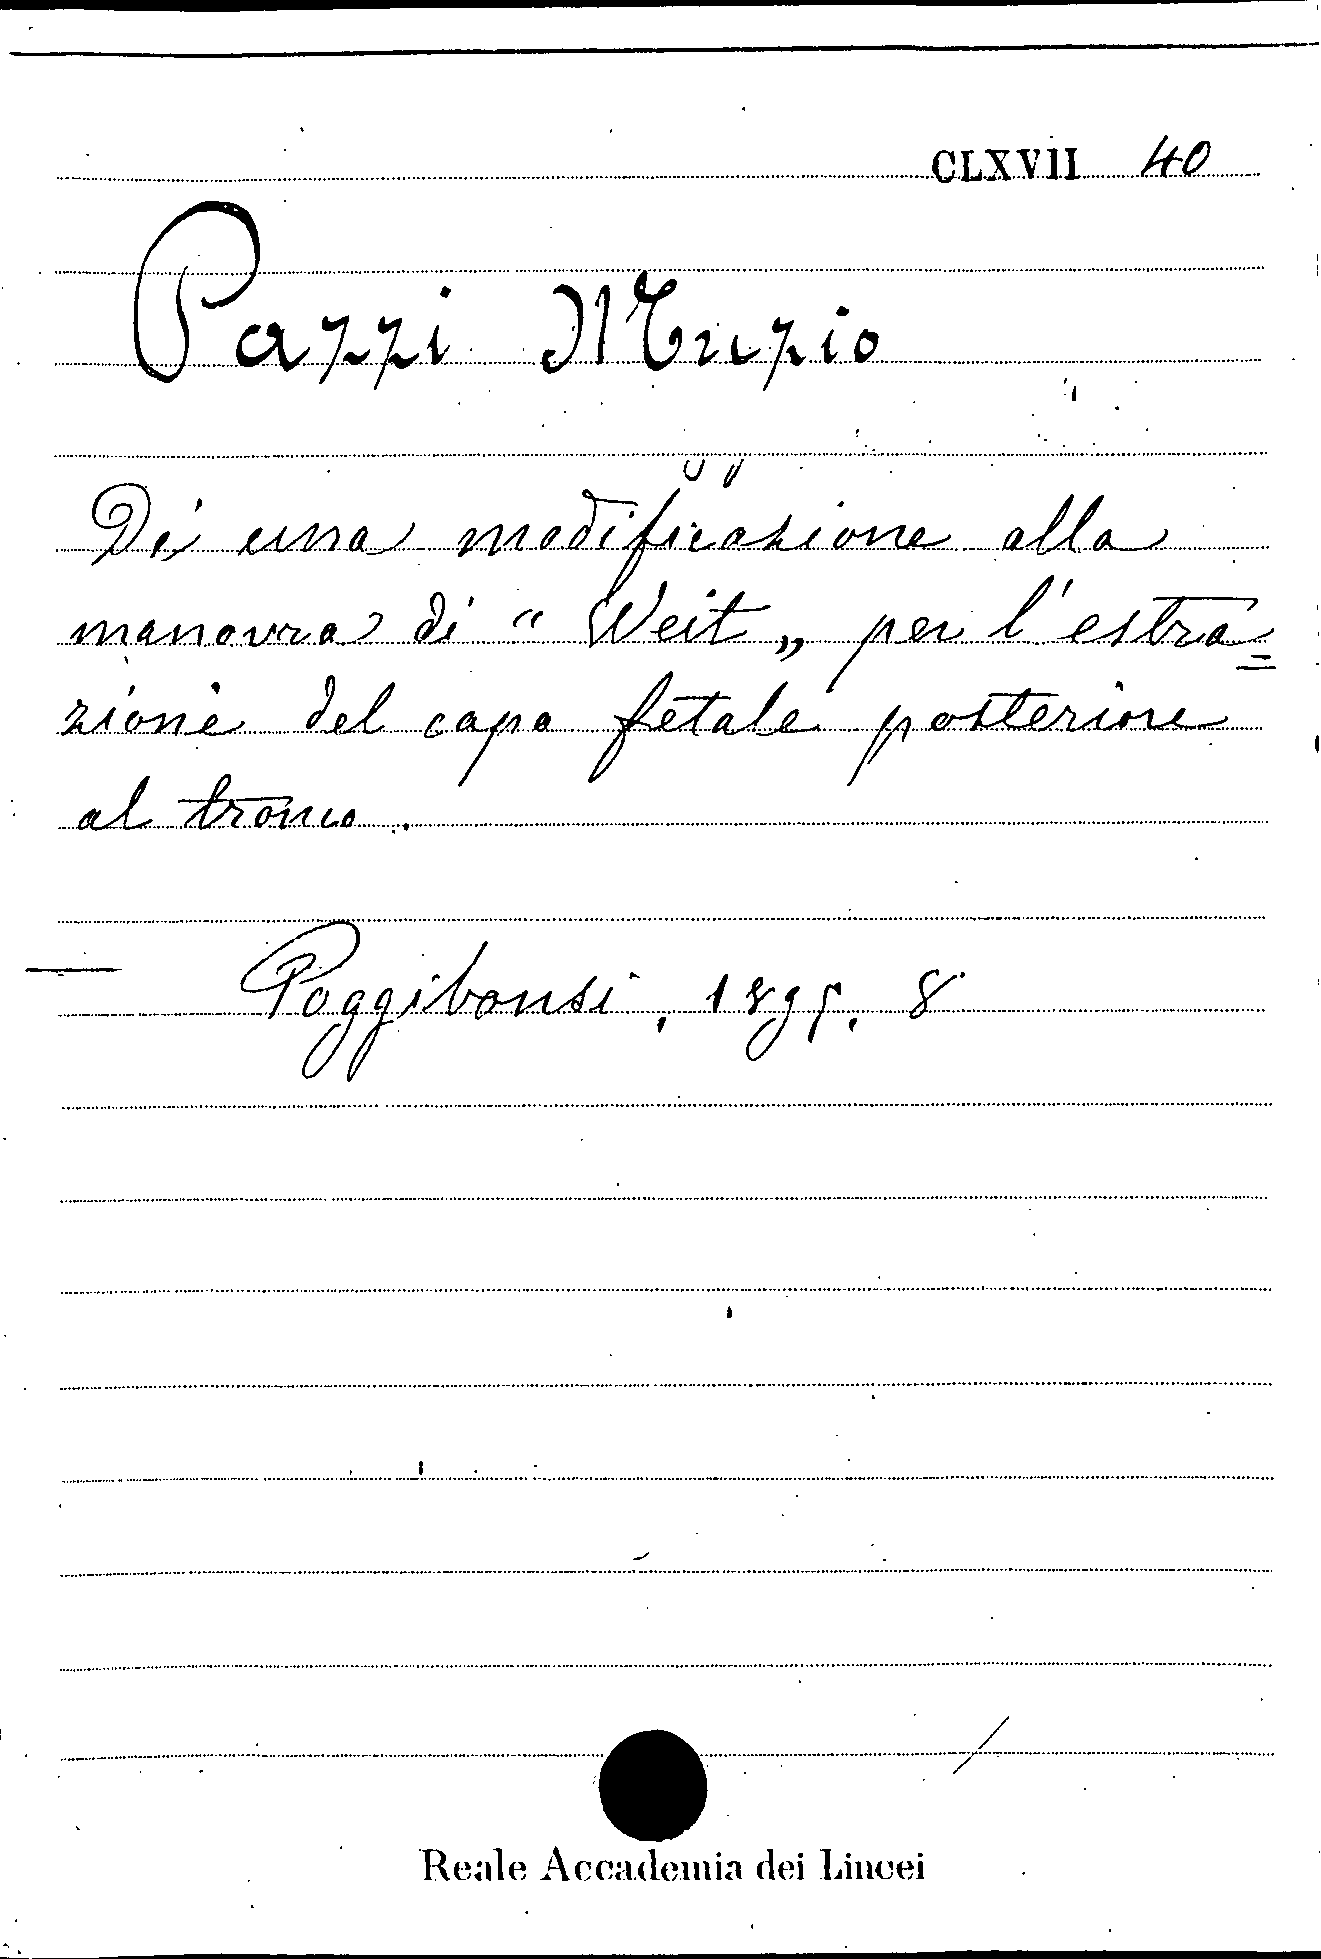 CLXVII 40
Pazzi Muzio
Di una modificazione alla
manovra di " Weit „ per l'estra=
zione del capo fetale posteriore
al tronco.
Poggibonsi, 1895, 8
Reale Accademia dei Lincei